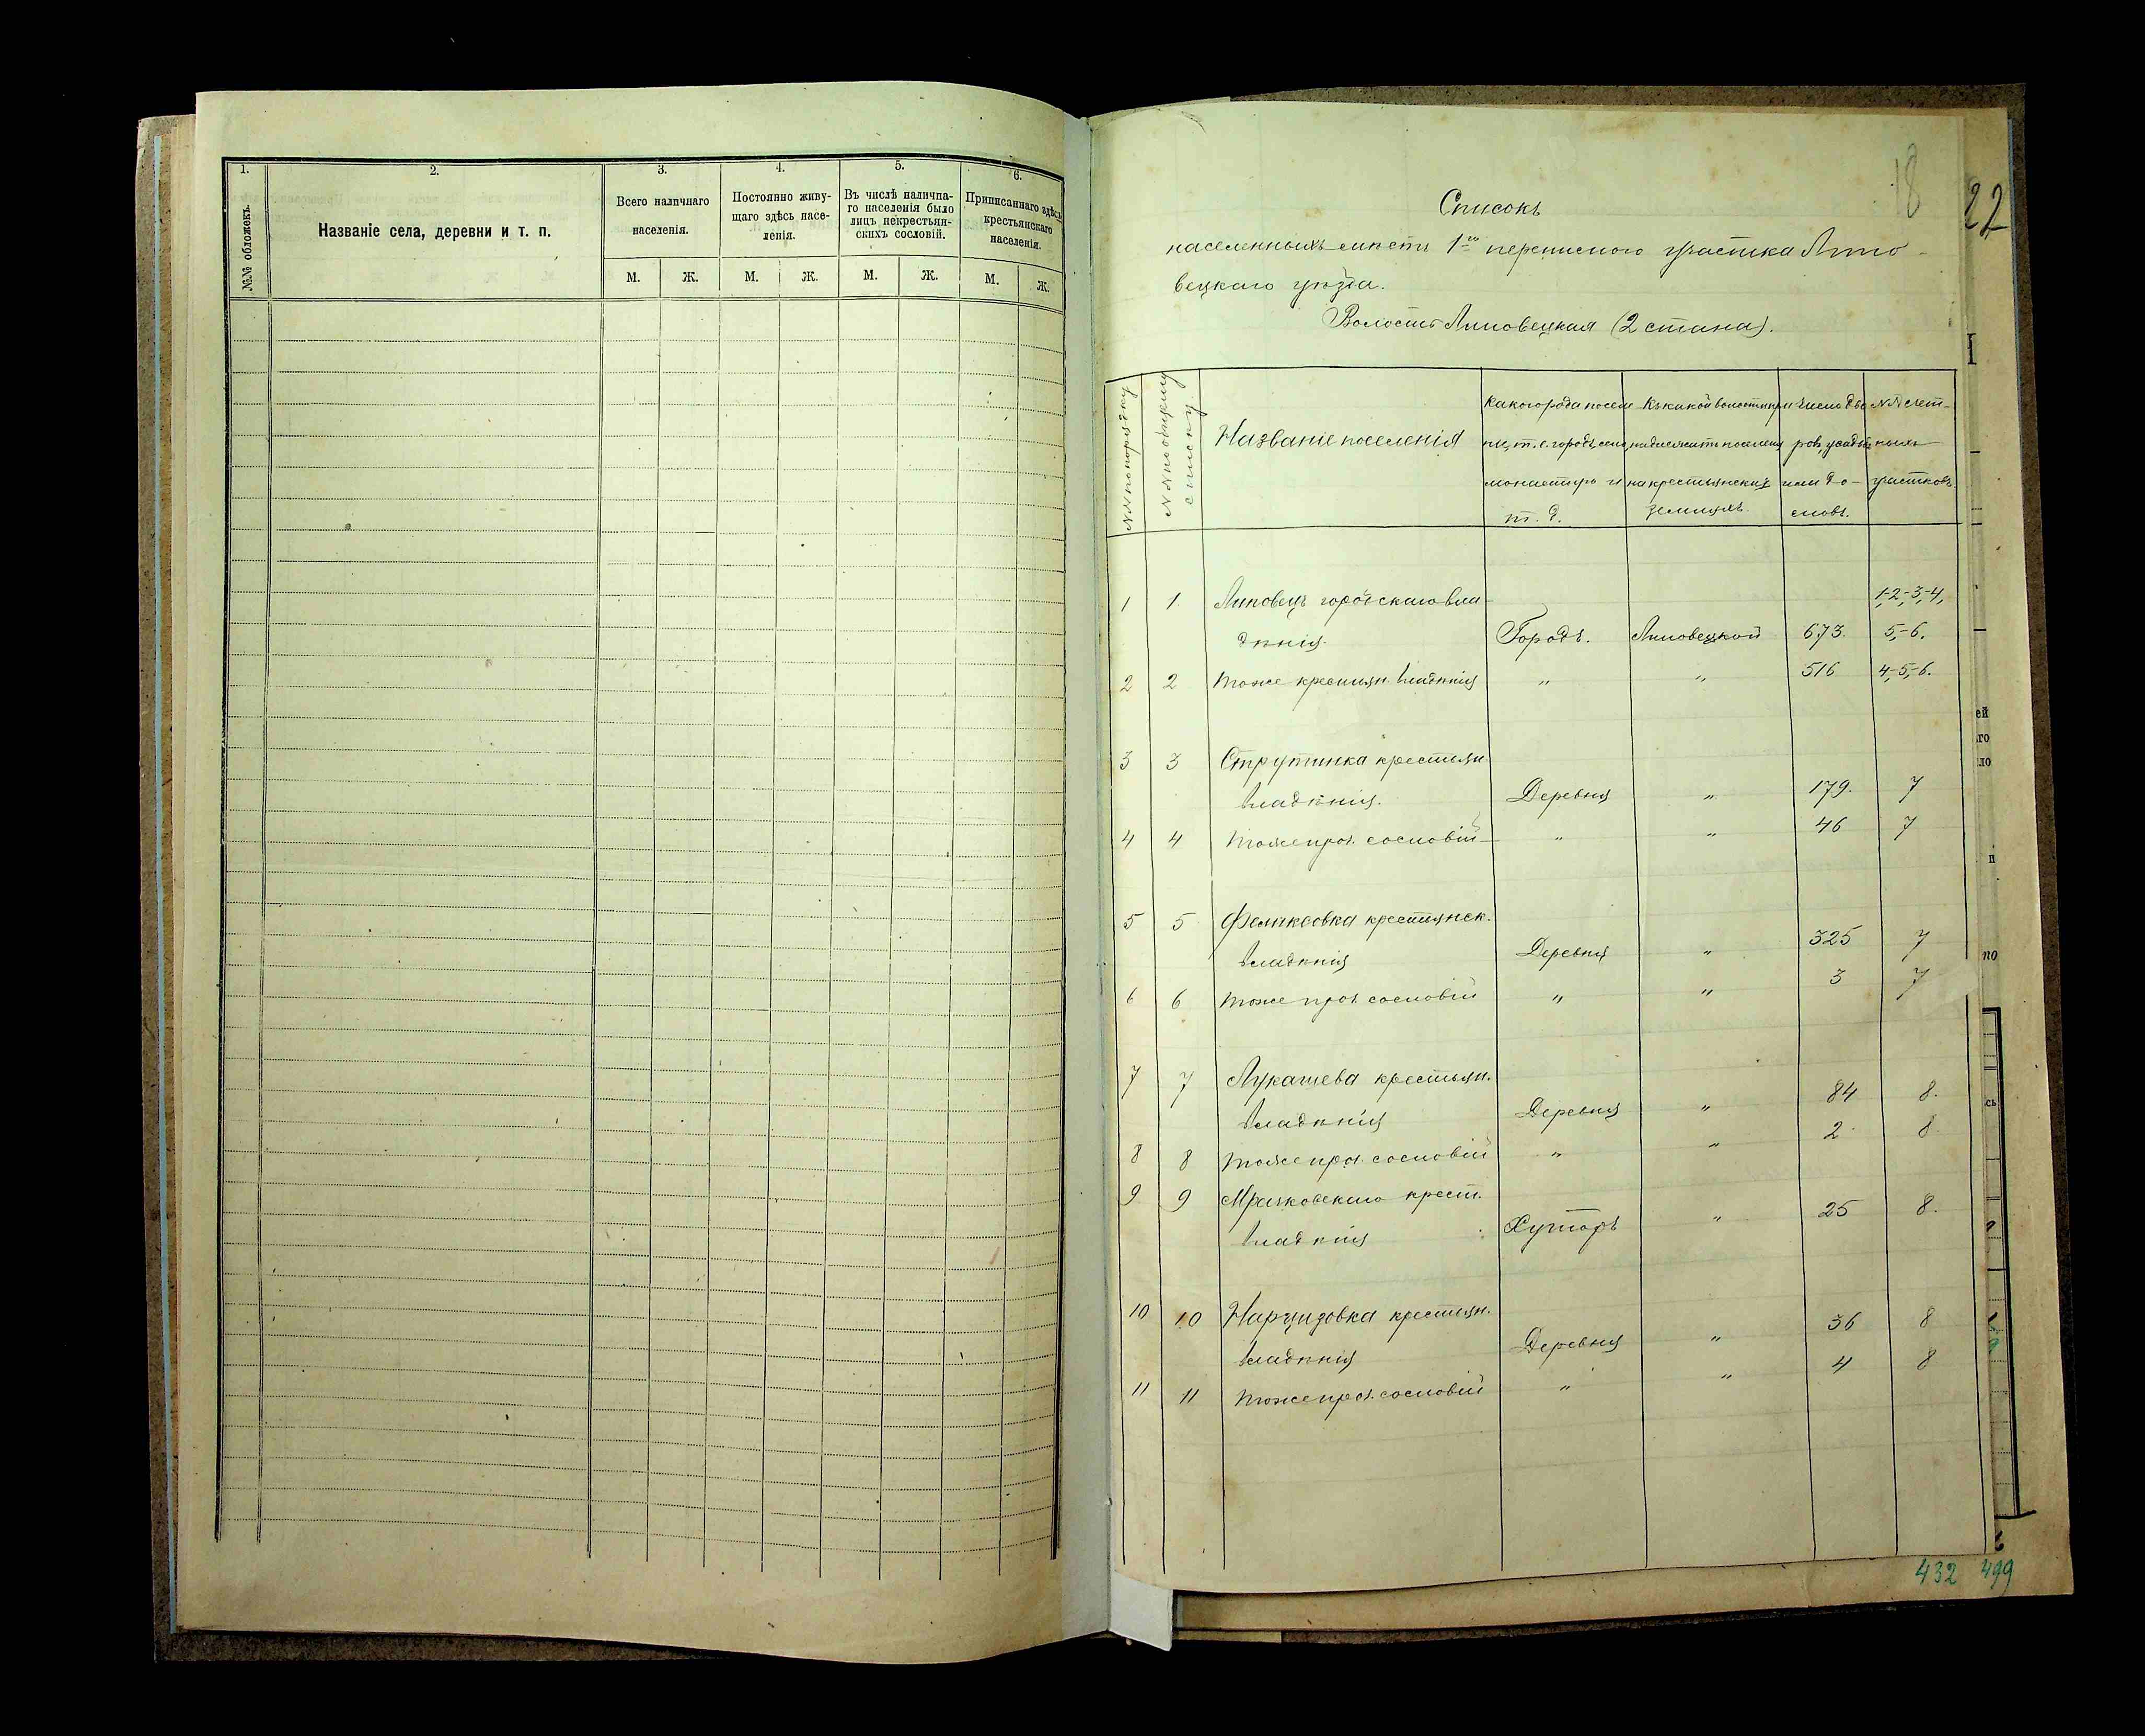 1. 2. 3. 4. 5. 6.
№№ обложекъ.
Названіе села, деревни и т. п.
Всего наличнаго
населенія.
Постоянно живу-
щаго здѣсь насе-
ленія.
Въ числѣ налична-
го населенія было
лицъ некрестьян-
скихъ сословій.
Приписаннаго здѣсь
крестьянскаго
населенія.
М. Ж. М. Ж. М. Ж. М. Ж.
18
22
Списокъ
населенныхъ мѣстъ 1го переписного участка Липо-
вецкаго уѣзда.
Волость Липовецкая (2 стана).
№№ по порядку
№№ по общему
списку.
Названіе поселенія
Какого рода поселе-
ніе, т. е. городъ, село,
монастырь и
т. д.
Къ какой волости при-
надлежитъ поселеніе
на крестьянскихъ
земляхъ.
Число дво-
ровъ, усадьбъ
или до-
мовъ.
№№ счет-
ныхъ
участковъ.
1 1. Липовецъ городскаго вла- 1,-2,-3,-4,
дѣнія. Городъ. Липовецкой 673. 5,-6.
2 2 тоже крестьян. владѣнія " " 516 4,-5,-6.
3 3 Струтинка крестьян.
владѣнія. Деревня " 179. 7
4 4 тоже проч. сословій " " 46 7
5 5 Феликсовка крестьянск.
владѣнія Деревня " 325 7
6 6 тоже проч. сословій " " 3 7
7 7 Лукашева крестьян.
владѣнія Деревня " 84 8.
8 8 тоже проч. сословій " " 2 8.
9 9 Мрачковскаго крест.
владѣнія Хуторъ " 25 8.
10 10 Нарцизовка крестьян.
владѣнія Деревня " 36 8
11 11 тоже проч. сословій " " 4 8
ей
го
ло
п
по
сь
432 499